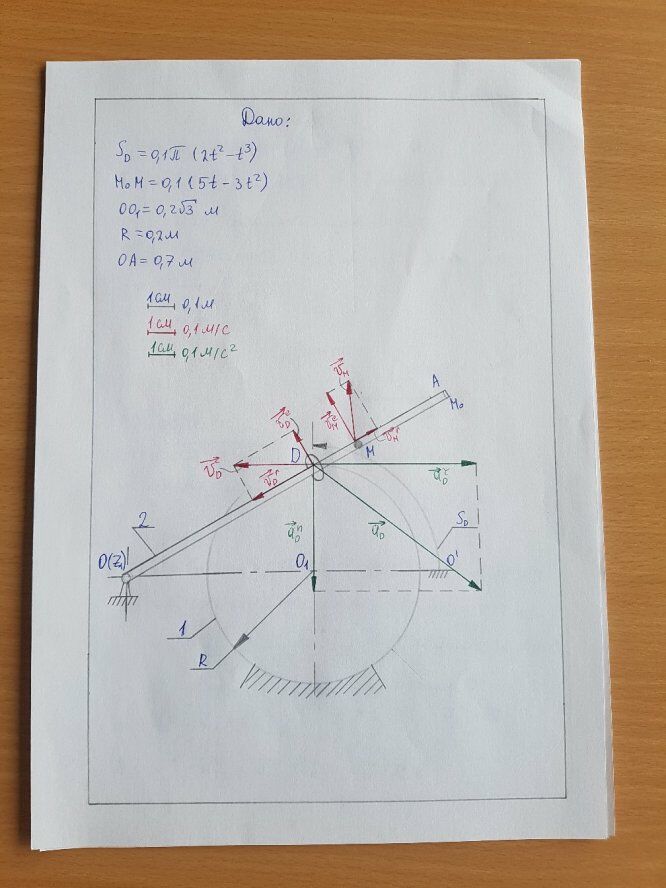 Дано:
S_D = 0,1π (2t² - t³)
M₀M = 0,1 (5t - 3t²)
OO₁ = 0,2√3 м
R = 0,2м
OA = 0,7 м
1см 0,1м
1см 0,1м/с
1см 0,1м/с²
A
M₀
v̄_M
v̄_M^e
v̄_M^r
M
v̄_D^e
D
v̄_D
v̄_D^r
a̅_D^τ
2
a̅_D^n
a̅_D
S_D
O(Z₁)
O₁
O'
1
R